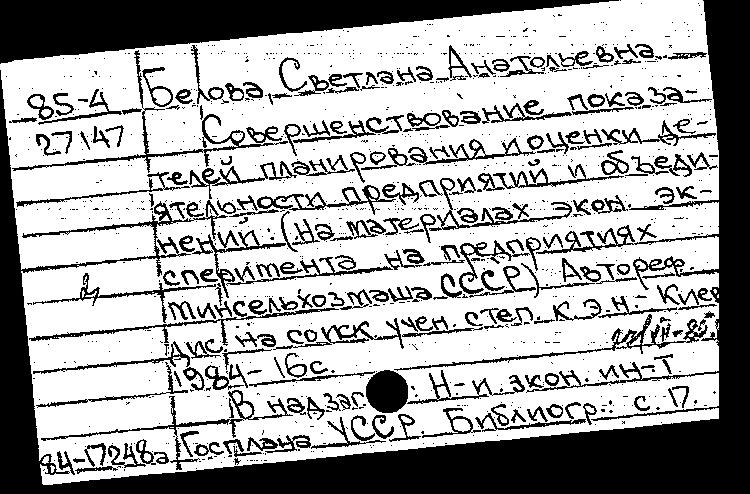 85-4 Белова, Светлана Анатольевна
27147 Совершенствование показа-
телей планирования и оценки де-
ятельности предприятий и объеди-
нений: (На материалах экон. эк-
сперимента на предприятиях
Минсельхозмаша СССР) Автореф.
дис. на соиск. учен. степ. к. э. н. - Киев
1984 - 16 с.
В надзаг.: Н-и. экон. ин-т
84-17248а Госплана УССР. Библиогр.: с. 17.